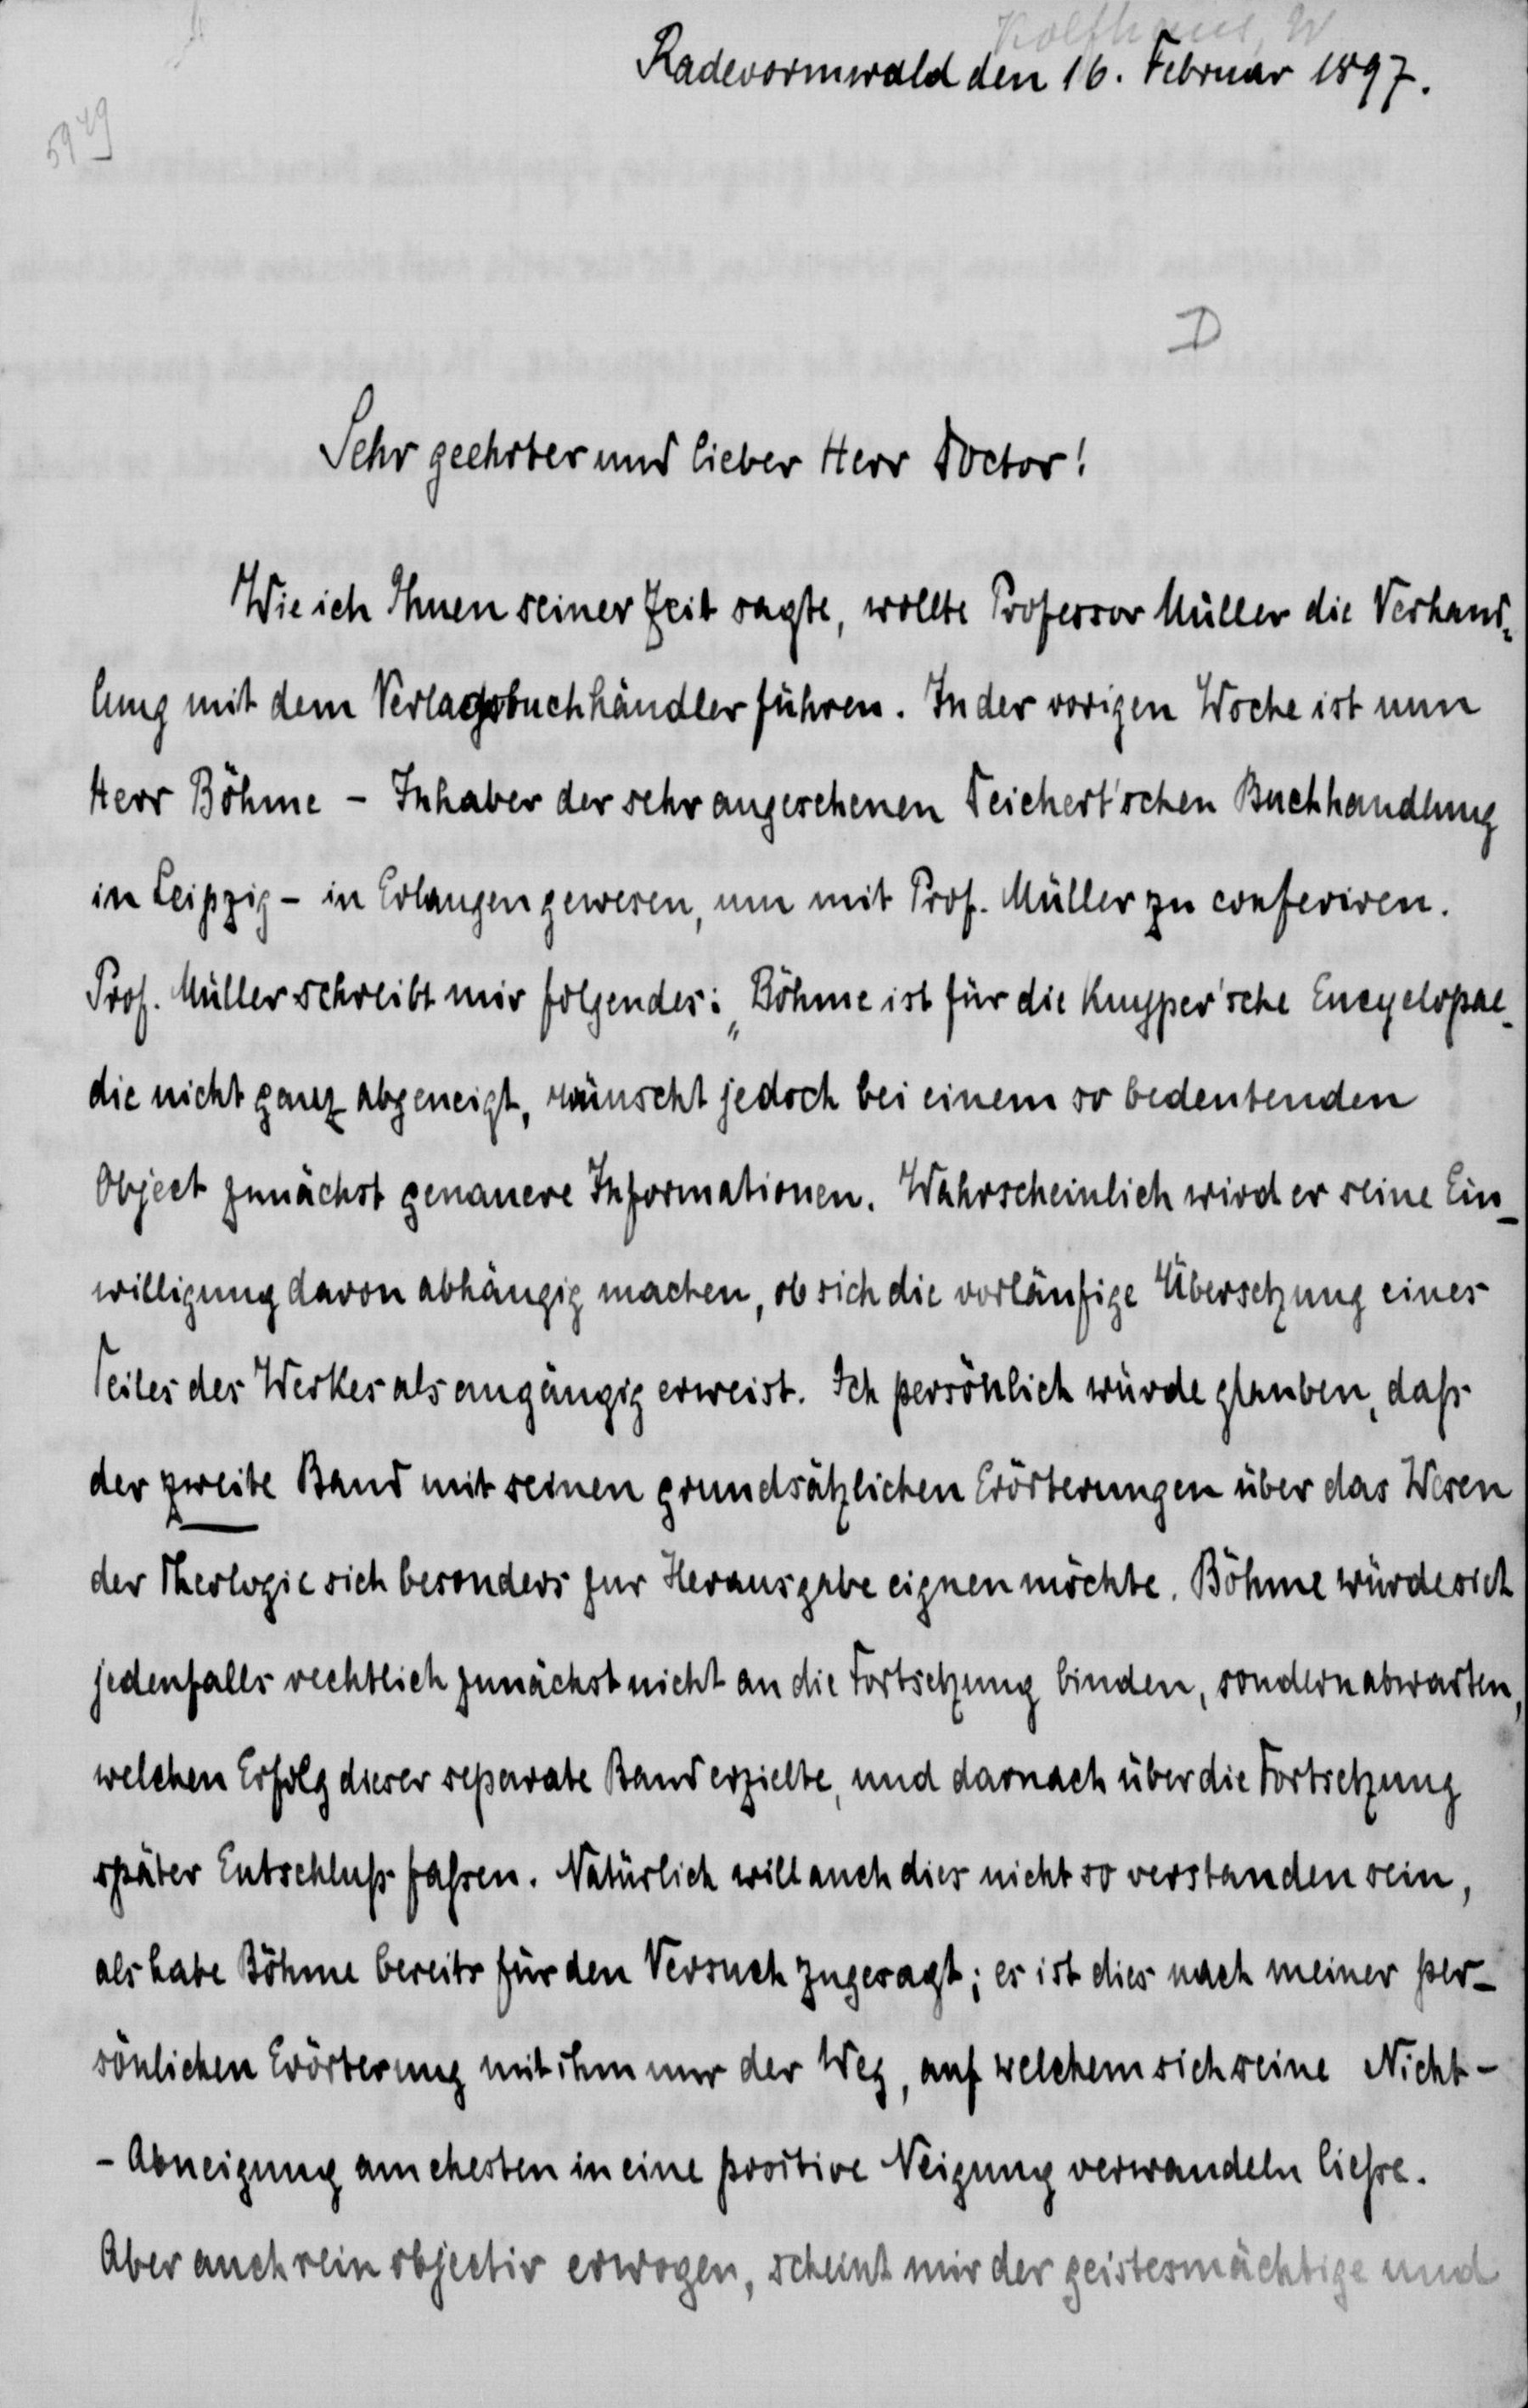 Kolfhaus, W
Radevormwald den 16. Februar 1897.
5949
D
Sehr geehrter und lieber Herr Doctor!
Wie ich Ihnen seiner Zeit sagte, wollte Professor Müller die Verhand-
lung mit dem Verlagsbuchhändler führen. In der vorigen Woche ist nun
Herr Böhme - Inhaber der sehr angesehenen Deichert'schen Buchhandlung
in Leipzig - in Erlangen gewesen, um mit Prof. Müller zu conferiren.
Prof. Müller schreibt mir folgendes: „Böhme ist für die Kuyper'sche Encyclopae-
die nicht ganz abgeneigt, wünscht jedoch bei einem so bedeutenden
Object zunächst genauere Informationen. Wahrscheinlich wird er seine Ein-
willigung davon abhängig machen, ob sich die vorläufige Übersetzung eines
Teiles des Werkes als angängig erweist. Ich persönlich würde glauben, daß
der zweite Band mit seinen grundsätzlichen Erörterungen über das Wesen
der Theologie sich besonders zur Herausgabe eignen möchte. Böhme würde sich
jedenfalls rechtlich zunächst nicht an die Fortsetzung binden, sondern abwarten,
welchen Erfolg dieser separate Band erzielte, und darnach über die Fortsetzung
später Entschluß faßen. Natürlich will auch dies nicht so verstanden sein,
als habe Böhme bereits für den Versuch zugesagt; es ist dies nach meiner per-
sönlichen Erörterung mit ihm nur der Weg, auf welchem sich seine Nicht-
- Abneigung am ehesten in eine positive Neigung verwandeln ließe.
Aber auch rein objectiv erwogen, scheint mir der geistesmächtige und